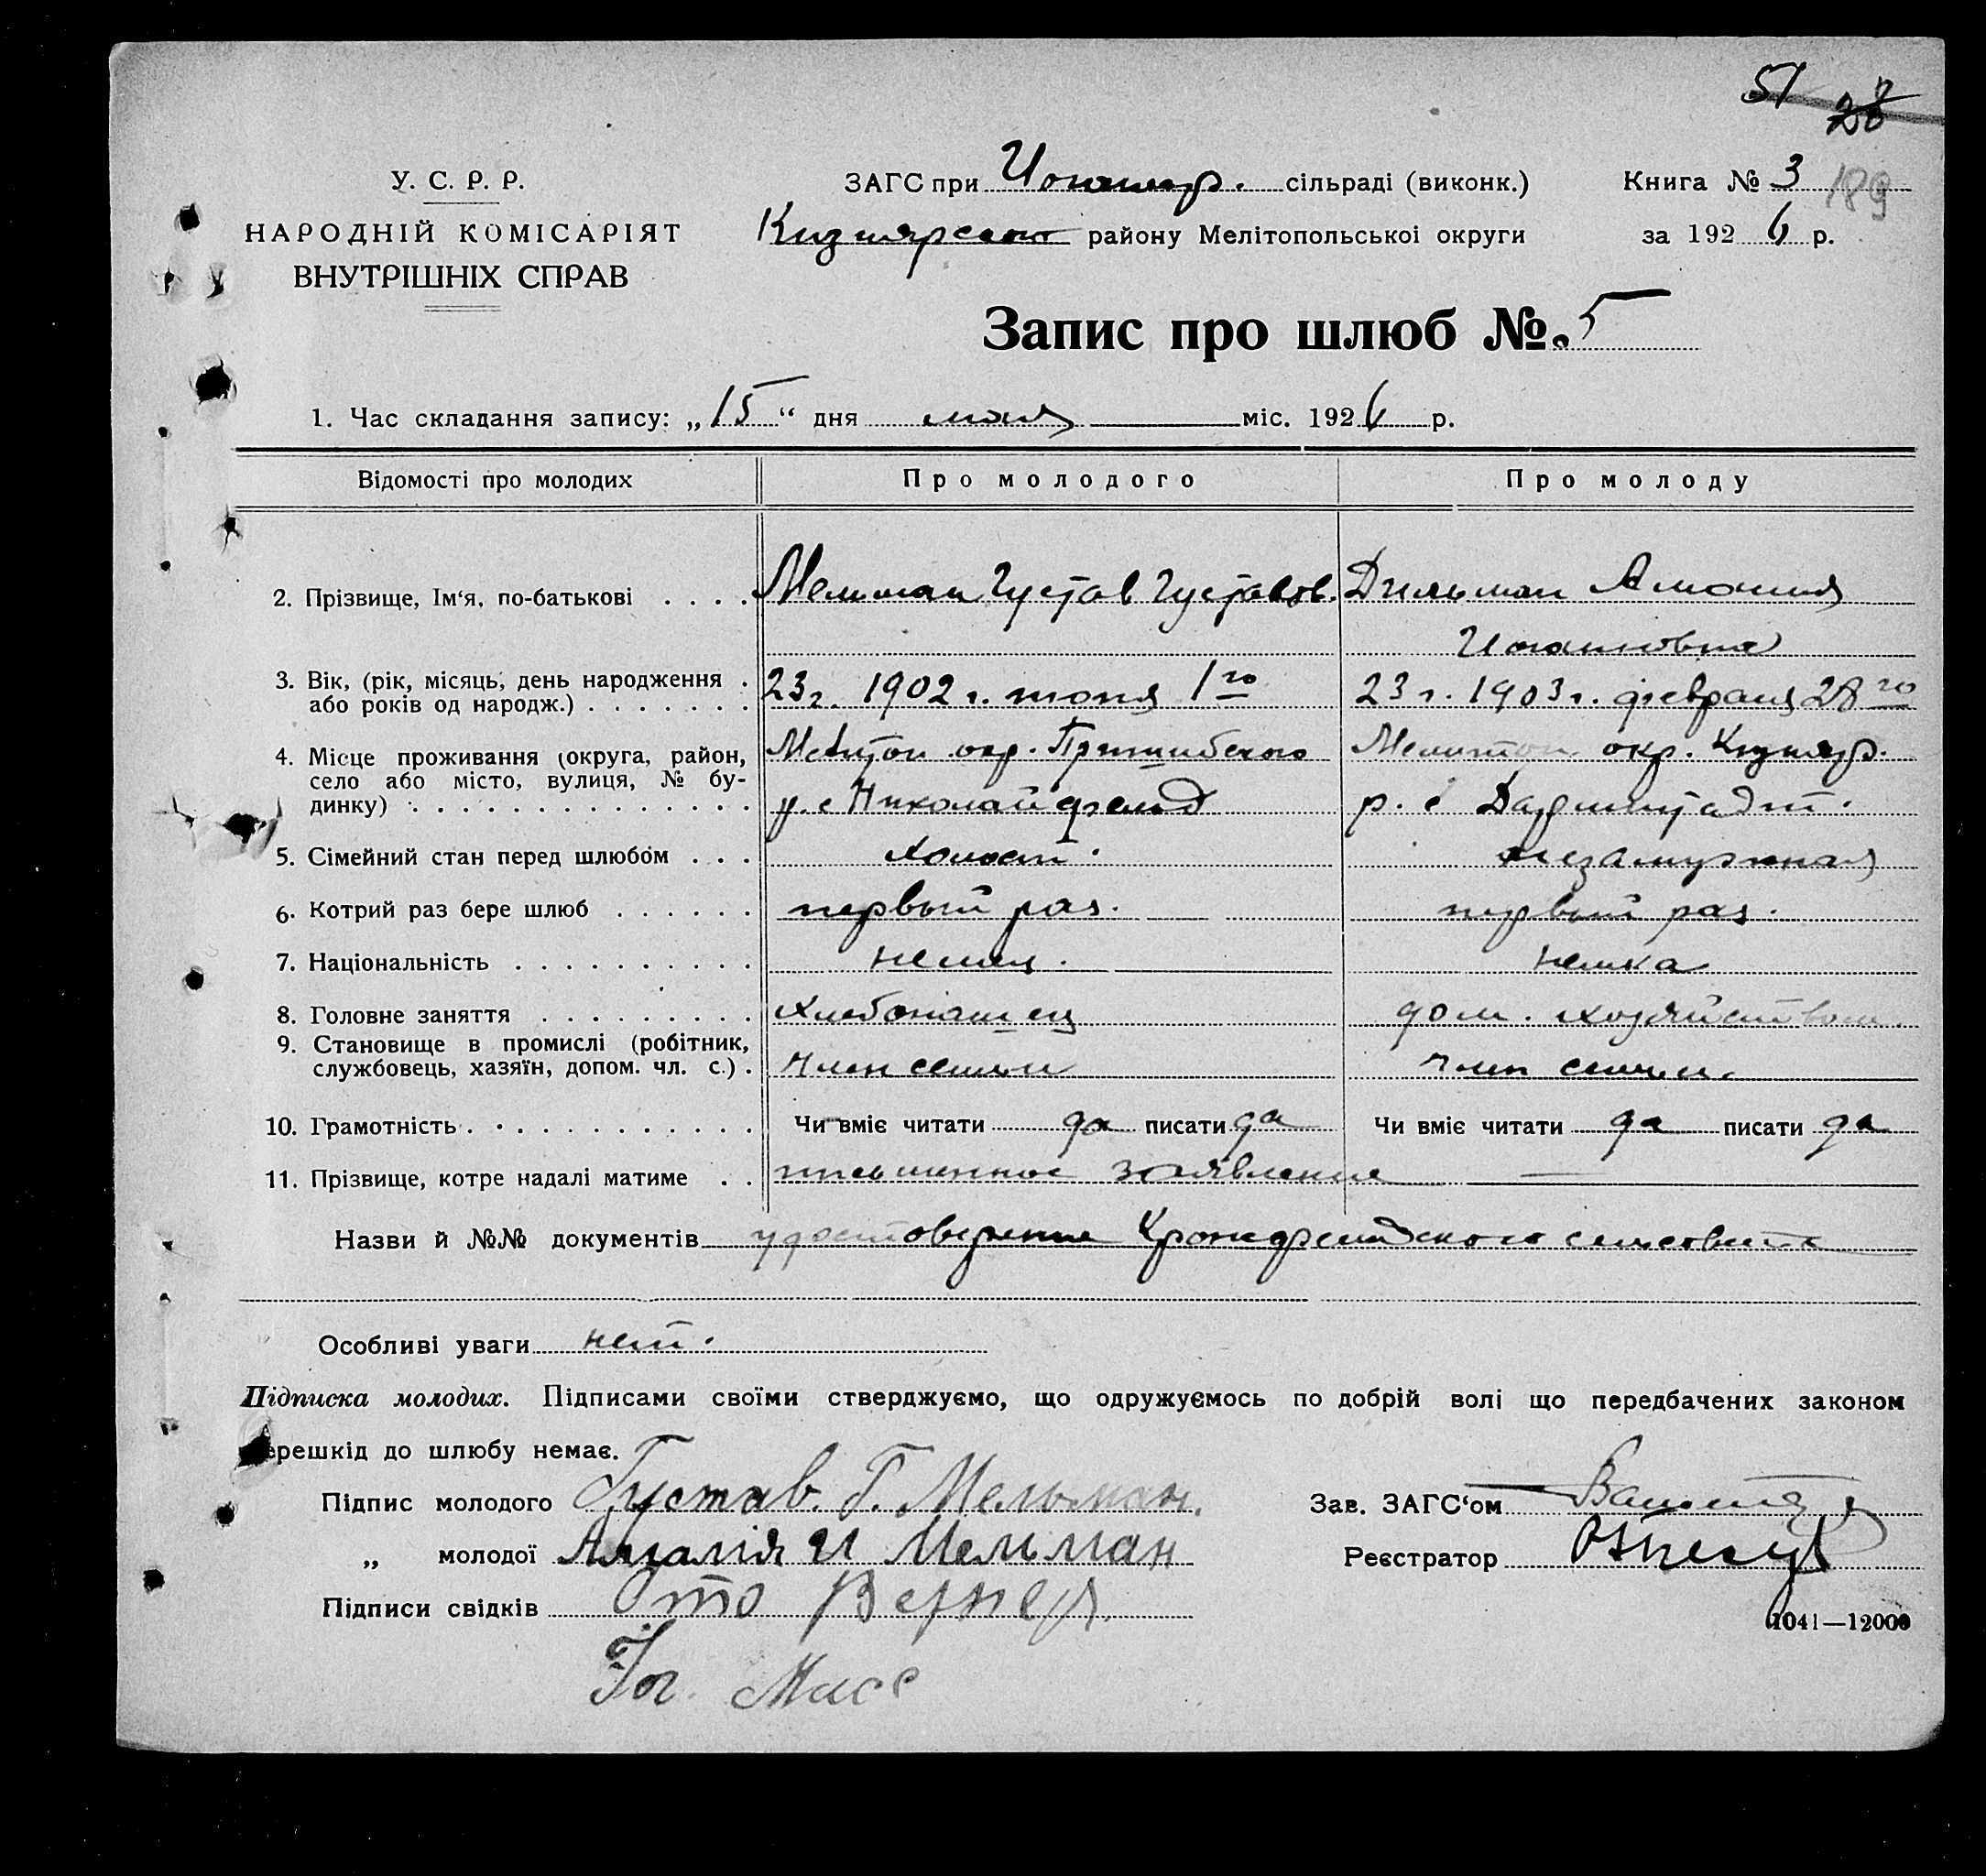 51 28
У. С. Р. Р.
НАРОДНІЙ КОМІСАРІЯТ
ВНУТРІШНІХ СПРАВ
ЗАГС при сільраді (виконк.)
Кизиярского району Мелітопольської округи
Книга № 3 189
за 1926 р.
Запис про шлюб № 5
1. Час складання запису: „15“ дня мая міс. 1926 р.
Відомості про молодих Про молодого Про молоду
2. Прізвище, Ім'я, по-батькові . . . . Мельман Густав Густавов. Дильман Амалия
Иогановна
3. Вік, (рік, місяць, день народження . 23 г. 1902 г. июня 1го 23 г. 1903 г. февраля 28го
або років од народж.) . . . . . . .
4. Місце проживання (округа, район, Мелитоп окр. Пришибского Мелитоп. окр. Кизияр.
село або місто, вулиця, № бу-
динку) . . . . . . . . . . . . . р. с Николайфельд р. с Дармштадт.
5. Сімейний стан перед шлюбом . . . холост. незамужная
6. Котрий раз бере шлюб . . . . . . первый раз. первый раз.
7. Національність . . . . . . . . . . немец. немка
8. Головне заняття . . . . . . . . . Хлебопашец дом. хозяйством.
9. Становище в промислі (робітник,
службовець, хазяїн, допом. чл. с.) . Член семьи Член семьи.
10. Грамотність . . . . . . . . . . . . Чи вміє читати да писати да Чи вміє читати да писати да
11. Прізвище, котре надалі матиме . . письменное заявление —
Назви й №№ документів удостоверение Кронсфельдского сельсовета
Особливі уваги нет.
Підписка молодих. Підписами своїми стверджуємо, що одружуємось по добрій волі що передбачених законом
перешкід до шлюбу немає.
Підпис молодого Густав. Г. Мельман.
Зав. ЗАГС'ом
„ молодої Амалія И Мельман
Реєстратор
Підписи свідків Ото Вернер.
1041—12000
Іог. Масс